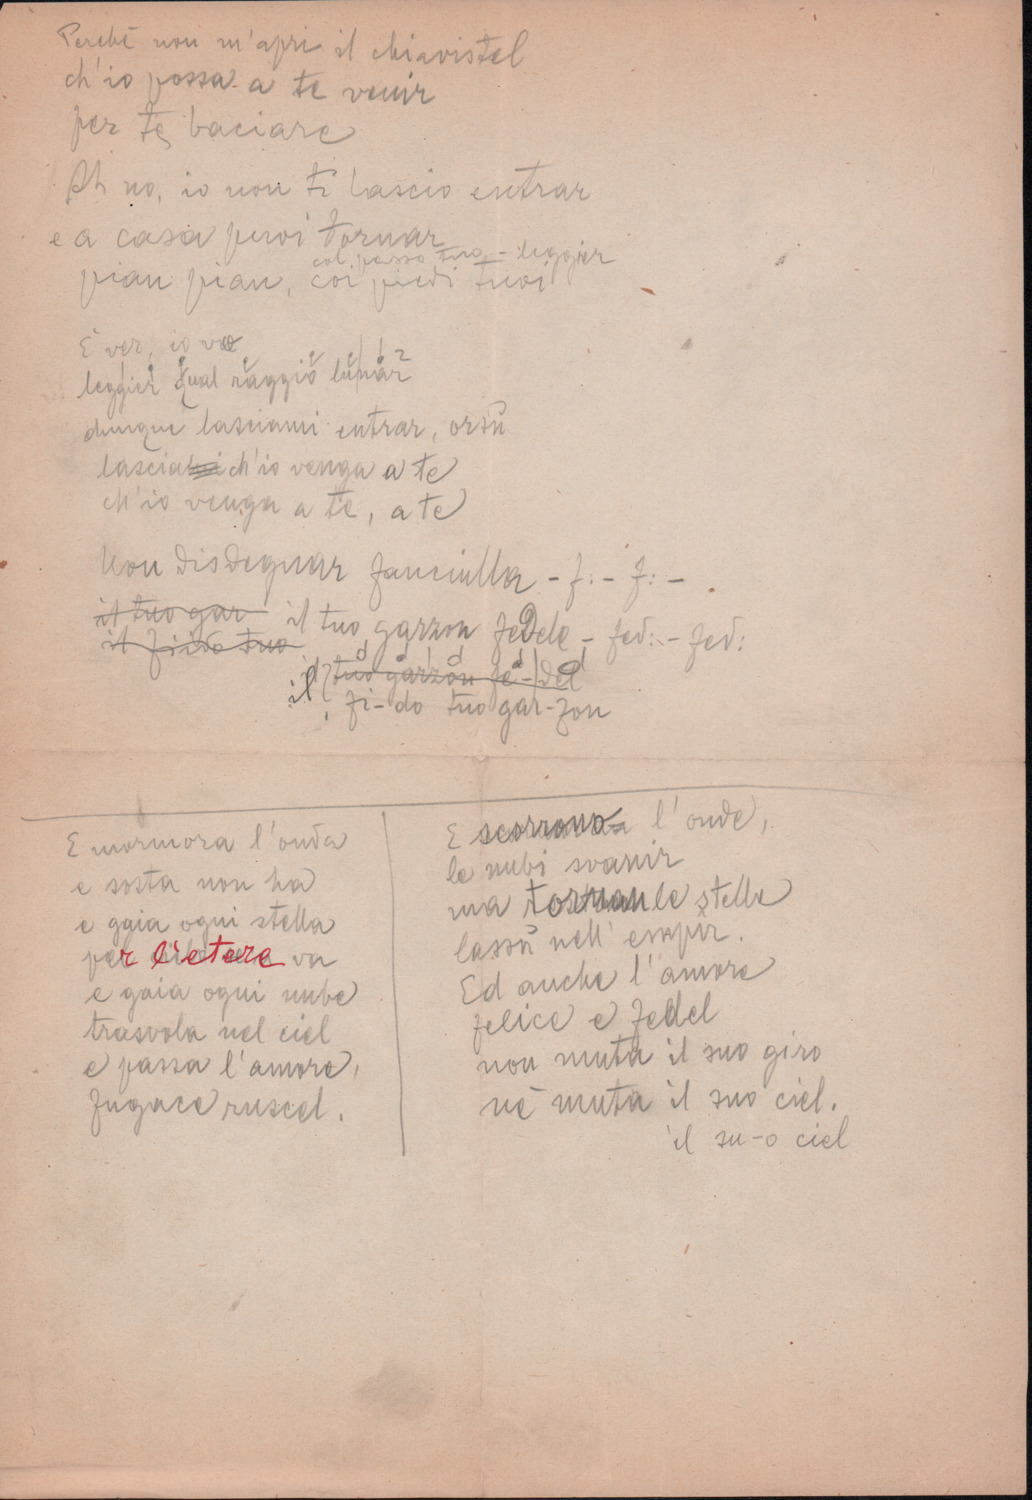 Perchè non m'apri il chiavistel
ch'io possa a te venir
per te baciare
Ah no, io non ti lascio entrar
e a casa puoi tornar
col passo tuo - leggier
pian pian, coi piedi tuoi
È ver, io vo
leggier qual raggio lunar
dunque lasciami entrar, orsù
lascia ch'io venga a te
ch'io venga a te, a te
Non disdegnar fanciulla - f: - f: -
il tuo gar il tuo garzon fedele - fed: - fed:
il fido tuo
il tuo garzon fe-del
il fi-do tuo gar-zon
E mormora l'onda
e sosta non ha
e gaia ogni stella
per l'etere va
e gaia ogni nube
trasvola nel ciel
e passa l'amore,
fugace ruscel.
E scorrono l'onde,
le nubi svanir
ma tornan le stelle
lassù nell' empir.
Ed anche l'amore
felice e fedel
non muta il suo giro
nè muta il suo ciel.
il su-o ciel